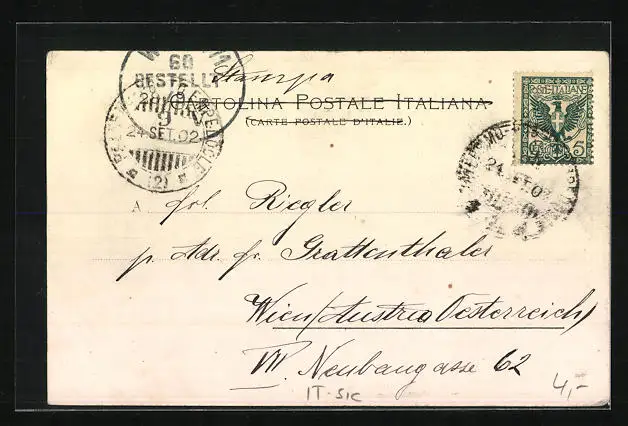 W
60
BESTELLT
9
24 SET. 02
(2)
Stampa
CARTOLINA POSTALE ITALIANA
(CARTE POSTALE D'ITALIE.)
POSTE ITALIANE
5
24 SET 02
A frl. Riegler
p. Adr. fr. Grattenthaler
Wien (Austria Oesterreich)
VII. Neubaugasse 62
IT-SIC
4,-